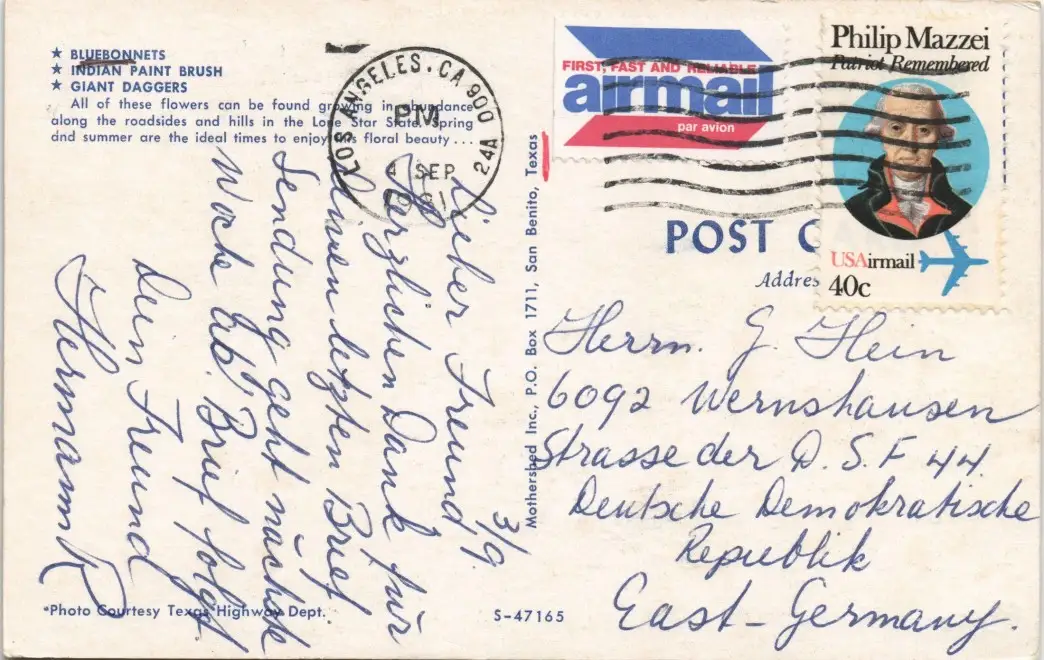 ★ BLUEBONNETS
★ INDIAN PAINT BRUSH
★ GIANT DAGGERS
All of these flowers can be found growing in abundance
along the roadsides and hills in the Lone Star State. Spring
and summer are the ideal times to enjoy its floral beauty . . .
LOS ANGELES . CA 900
PM
4 SEP
1981
24A
FIRST, FAST AND RELIABLE
airmail
par avion
Philip Mazzei
Patriot Remembered
USAirmail
40c
POST C
Addres
3/9.
Lieber Freund
Herzlichen Dank für
Deinen letzten Brief
Sendung geht nächste
Woche ab. Brief folgt
Dein Freund
Hermann R
Mothershed Inc., P.O. Box 1711, San Benito, Texas
Herrn. G. Hein
6092 Wernshausen
Strasse der D.S.F 44.
Deutsche Demokratische
Republik
East-Germany.
*Photo Courtesy Texas Highway Dept.
S-47165